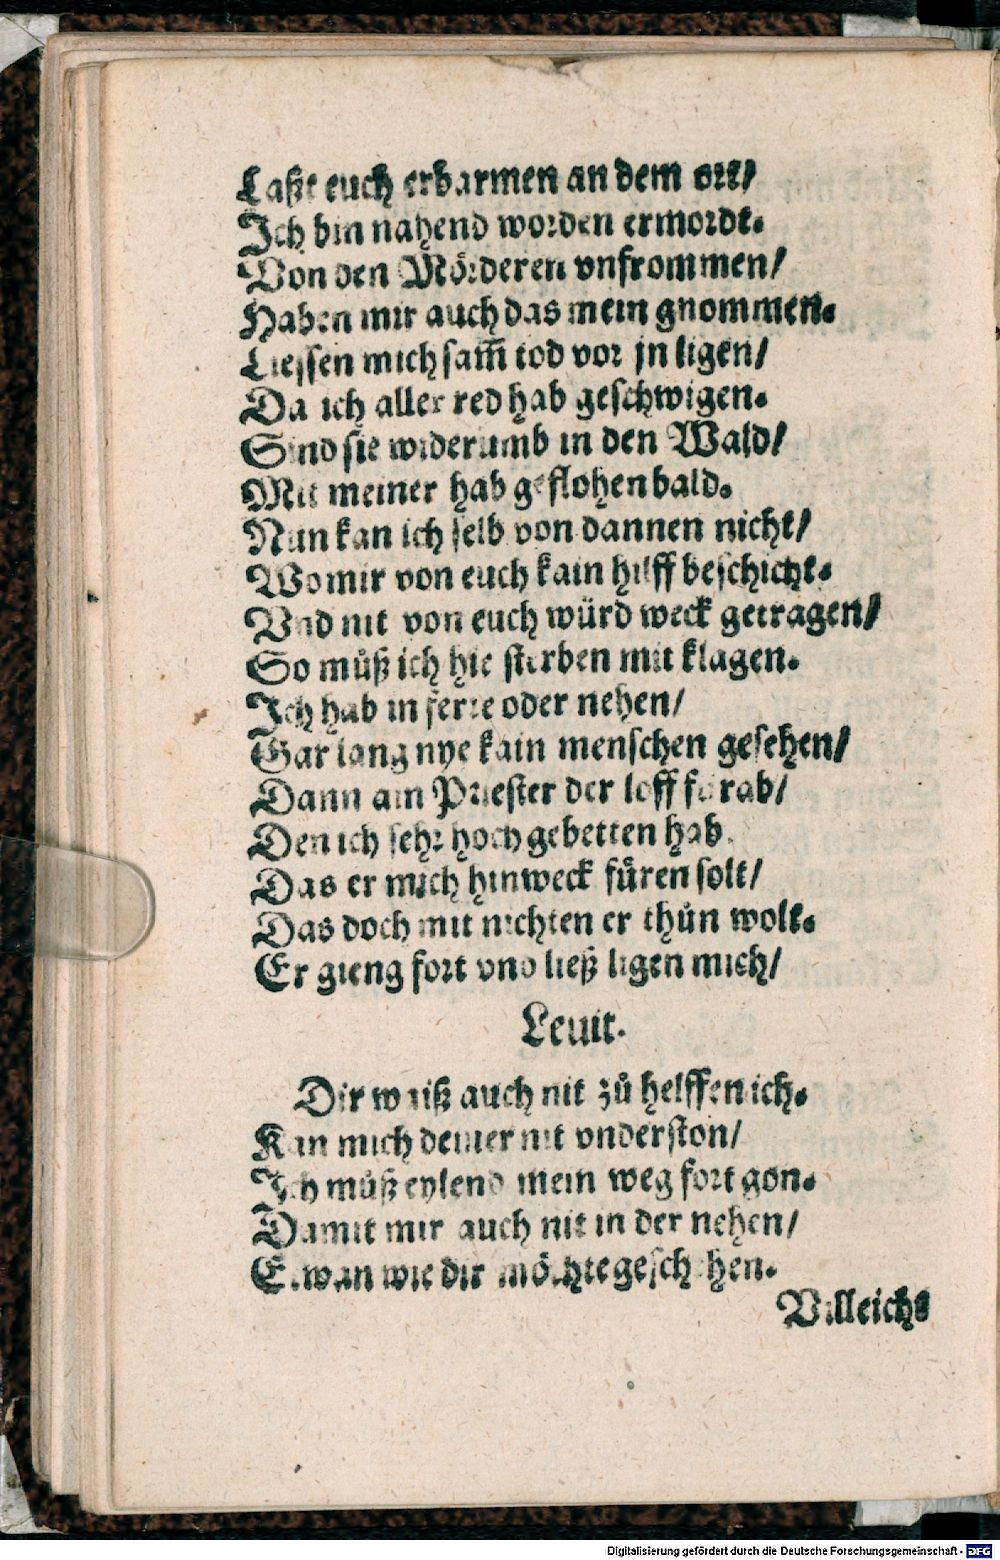 Laßt euch erbarmen an dem ort/
Ich bin nahend worden ermordt.
Von den Mörderen vnfrommen/
Haben mir auch das mein gnommen.
Liessen mich sam̃ tod vor jn ligen/
Da ich aller red hab geschwigen.
Sind sie widerumb in den Wald/
Mit meiner hab geflohen bald.
Nun kan ich selb von dannen nicht/
Wo mir von euch kain hilff beschicht.
Vnd nit von euch würd weck getragen/
So můß ich hie sterben mit klagen.
Ich hab in ferre oder nehen/
Gar lang nye kain menschen gesehen/
Dann ain Priester der loff fürab/
Den ich sehr hoch gebetten hab.
Das er mich hinweck füren solt/
Das doch mit nichten er thůn wolt.
Er gieng fort vnd ließ ligen mich/
Leuit.
Dir waiß auch nit zů helffen ich.
Kan mich deiner nit vnderston/
Ich můß eylend mein weg fort gon.
Damit mir auch nit in der nehen/
Etwan wie dir möchte geschehen.
Villeicht
Digitalisierung gefördert durch die Deutsche Forschungsgemeinschaft - DFG